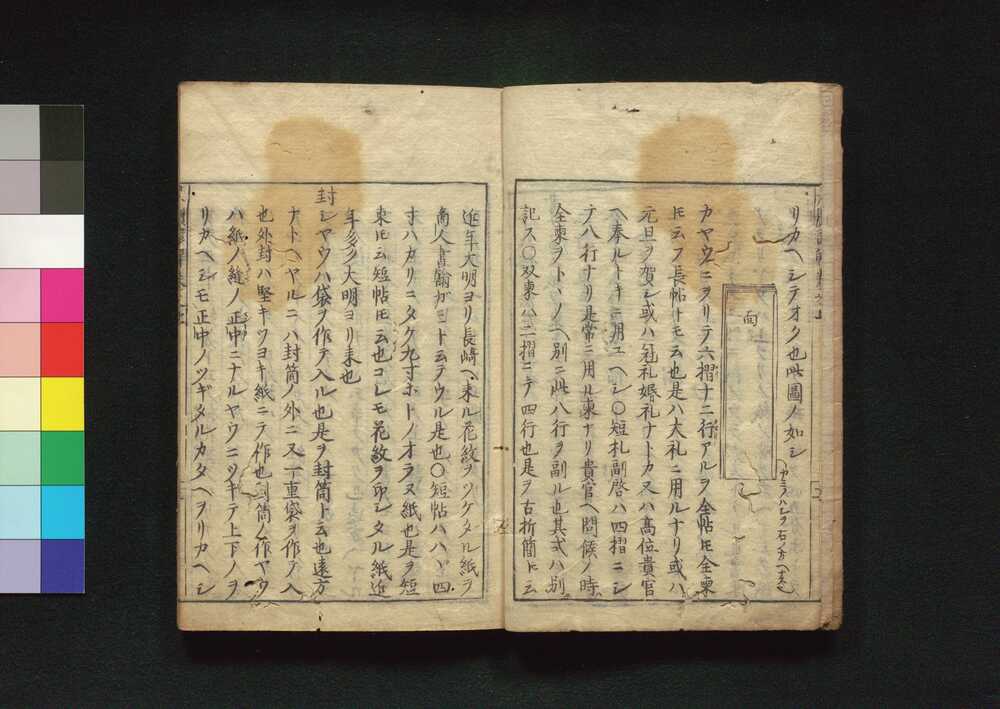 リカヘシテオク也此圖ノ如シ
面
カヤウニヲリテ六摺十二行アルヲ全帖ヒ全柬
ヒ云フ長帖ナモ云也是ハ大礼ニ用ルナリ或ハ
元旦ヲ賀シ或ハ冠礼婚礼ナトカ又ハ高位貴官
ヘ奉ルトキニ用ユヘシ○短札副啓ハ四摺ニシ
テ八行ナリ是常ニ用ル柬ナリ貴官ヘ問候ノ時
全柬ヲトヽノヘ別ニ此八行ヲ副ル也其式ハ別
記ス○双柬ハ二摺ニテ四行也是ヲ古折簡ヒ云
近年大明ヨリ長崎ヘ来ル花紋ヲツケタル紙ヲ
商人書翰ガミト云テウル是也○短帖ハハヾ四
寸ハカリニタケ九寸ホトノオラヌ紙也是ヲ短
柬ヒ云短帖ヒモ云也コレモ花紋ヲ印シタル紙近
年多ク大明ヨリ来也
封シヤウハ袋ヲ作テ入ル也是ヲ封筒ト云也遠方
ナトヘヤルニハ封筒ノ外ニ又一重袋ヲ作テ入
也外封ハ堅キツヨキ紙ニテ作也封筒ノ作ヤウ
ハ紙ノ縫ノ正中ニナルヤウニツギテ上下ノヲ
リカヘシモ正中ノツギタルカタヘヲリカヘシ